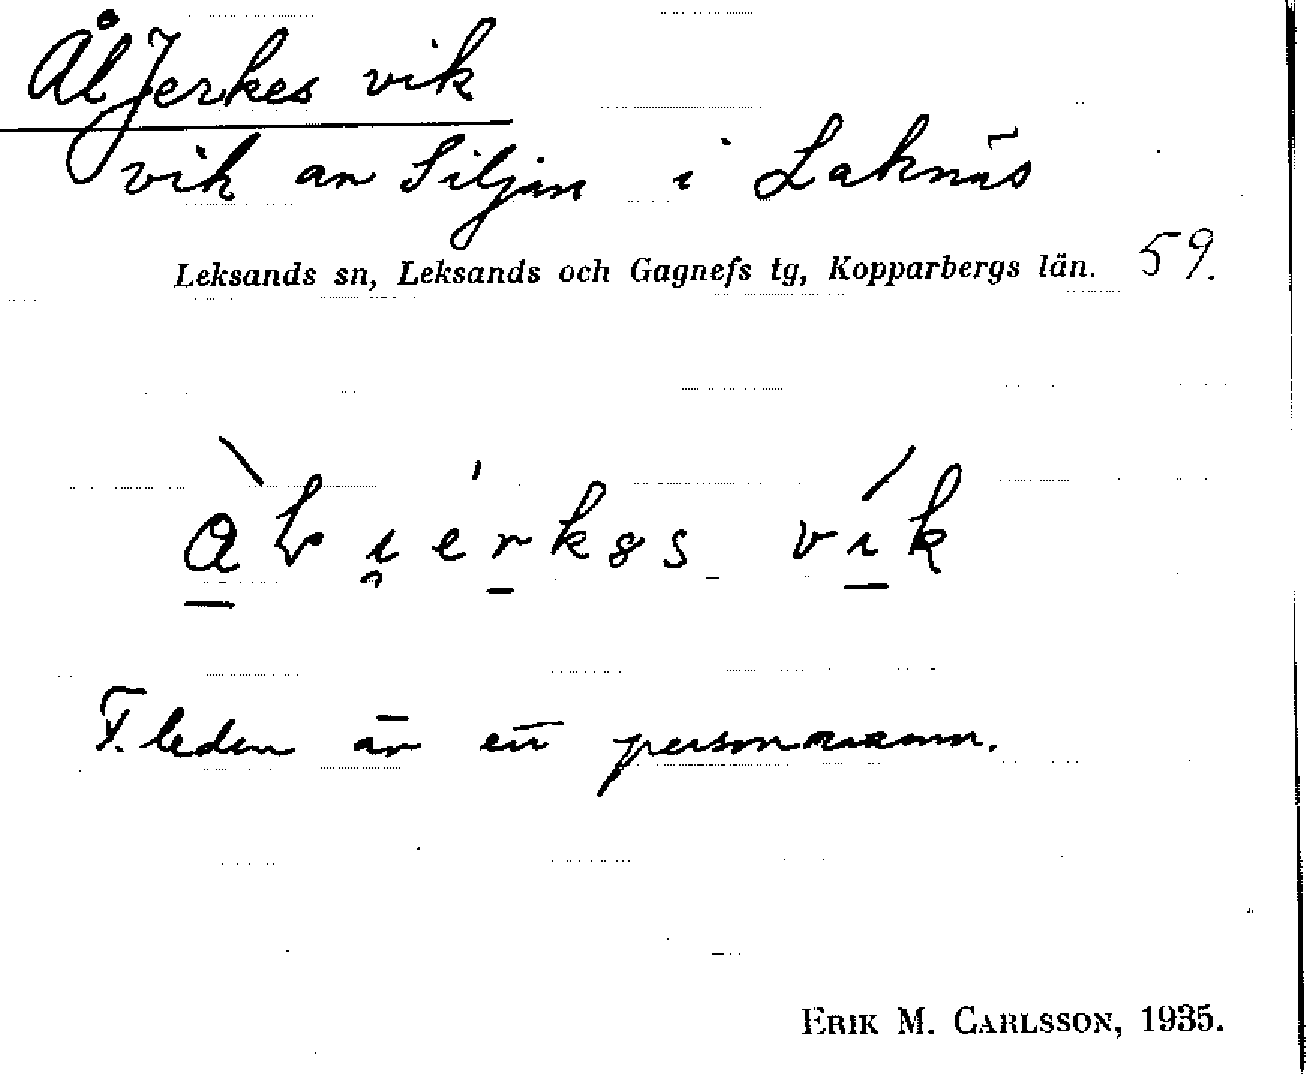 Ål Jerkes vik
vik av Siljan i Laknäs
Leksands sn, Leksands och Gagnefs tg, Kopparbergs län. 59.
vik
F. leden är ett personnamn.
ERIK M. CARLSSON, 1935.